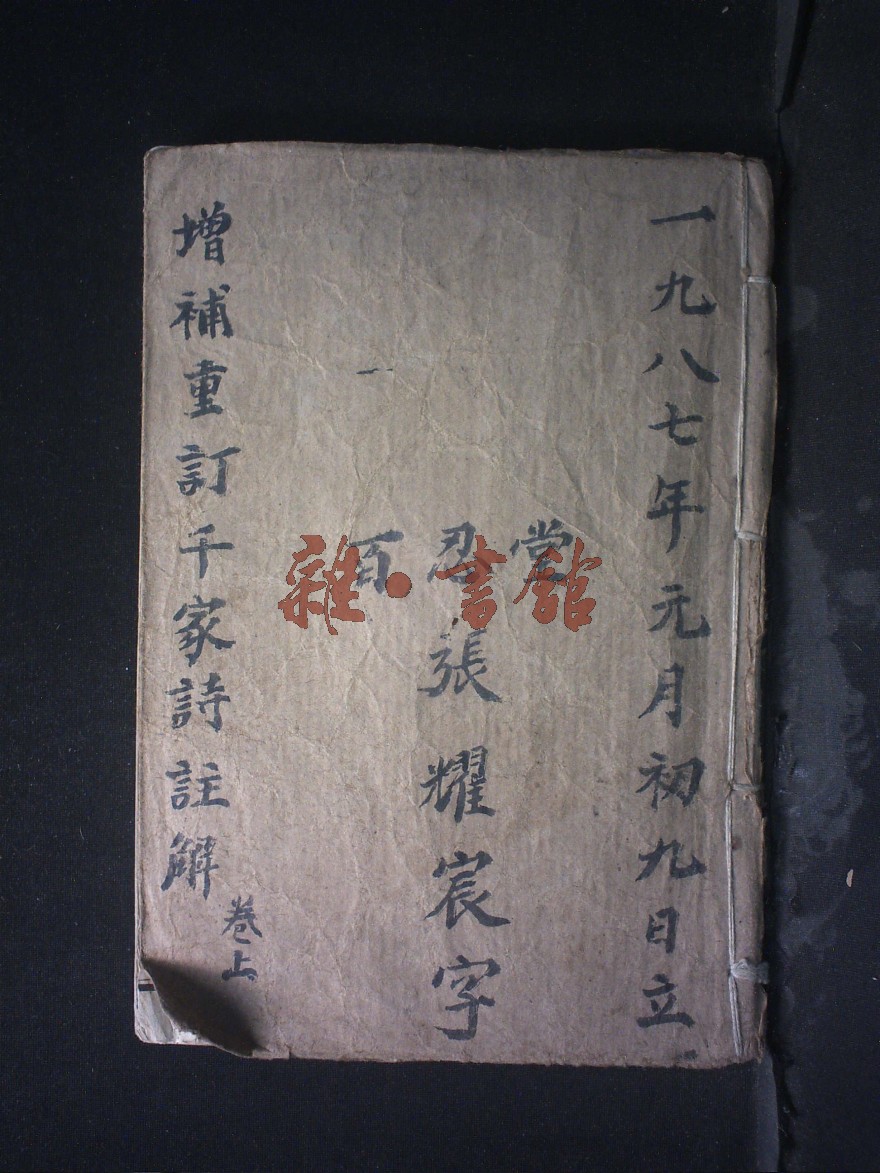 一九八七年元月初九日立
百忍堂
張耀宸字
增補重訂千家詩註解
卷上
雜·書館